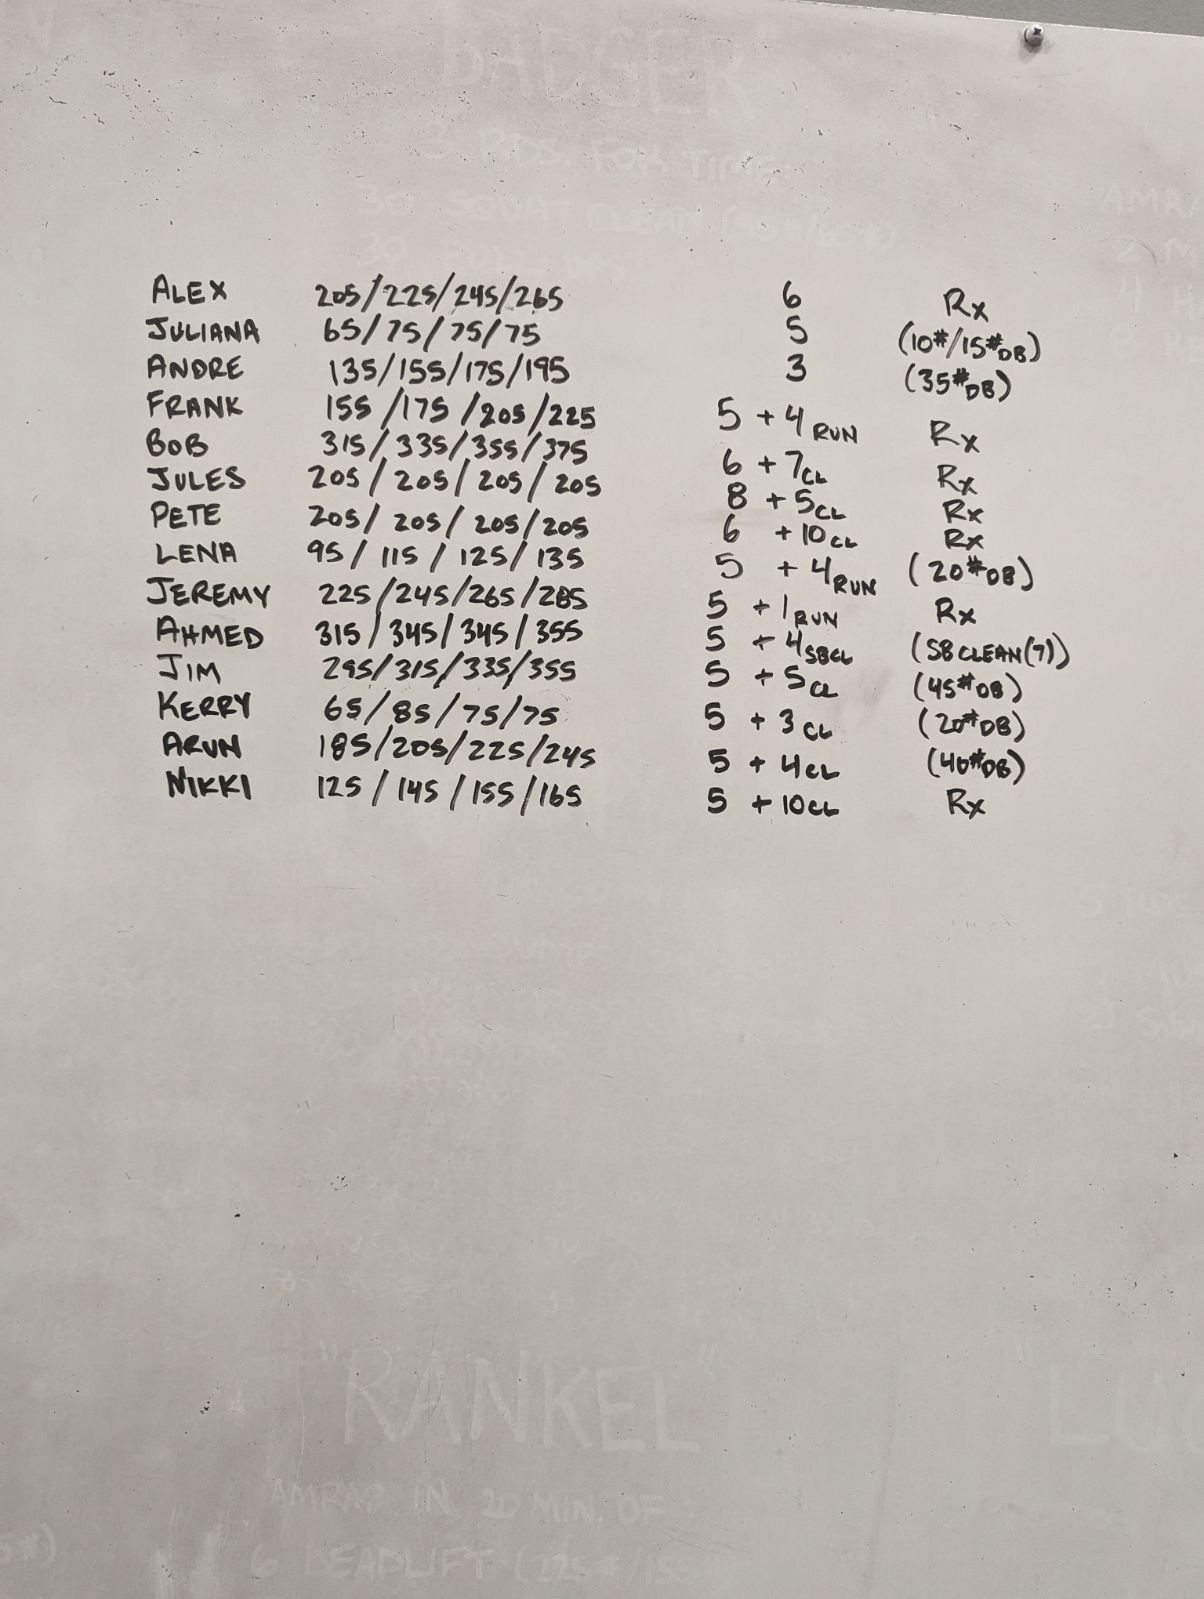 BADGER
3 RDS. FOR TIME
30 SQUAT CLEAN (95#/65#)
30 PULL-UPS
AMRA
ALEX 205/225/245/265 6 Rx
JULIANA 65/75/75/75 5 (10#/15#DB)
ANDRE 135/155/175/195 3 (35#DB)
FRANK 155/175/205/225 5 + 4 RUN Rx
BOB 315/335/355/375 6 + 7CL Rx
JULES 205/205/205/205 8 + 5CL Rx
PETE 205/205/205/205 6 + 10CL Rx
LENA 95/115/125/135 5 + 4RUN (20#DB)
JEREMY 225/245/265/285 5 + 1RUN Rx
AHMED 315/345/345/355 5 + 4SBCL (SB CLEAN(7))
JIM 295/315/335/355 5 + 5CL (45#DB)
KERRY 65/85/75/75 5 + 3CL (20#DB)
ARUN 185/205/225/245 5 + 4CL (40#DB)
NIKKI 125/145/155/165 5 + 10CL Rx
"RANKEL" "LU
AMRAP IN 20 MIN. OF:
6 DEADLIFT (225#/155#)